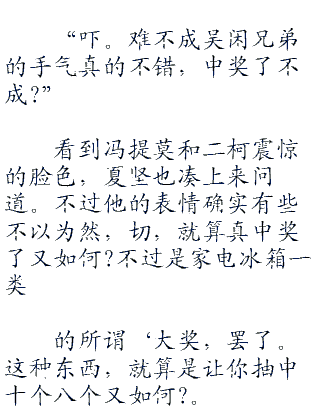 “吓。难不成吴闲兄弟
的手气真的不错，中奖了不
成?”
看到冯提莫和二柯震惊
的脸色，夏坚也凑上来问
道。不过他的表情确实有些
不以为然，切，就算真中奖
了又如何?不过是家电冰箱一
类
的所谓‘大奖，罢了。
这种东西，就算是让你抽中
十个八个又如何?。